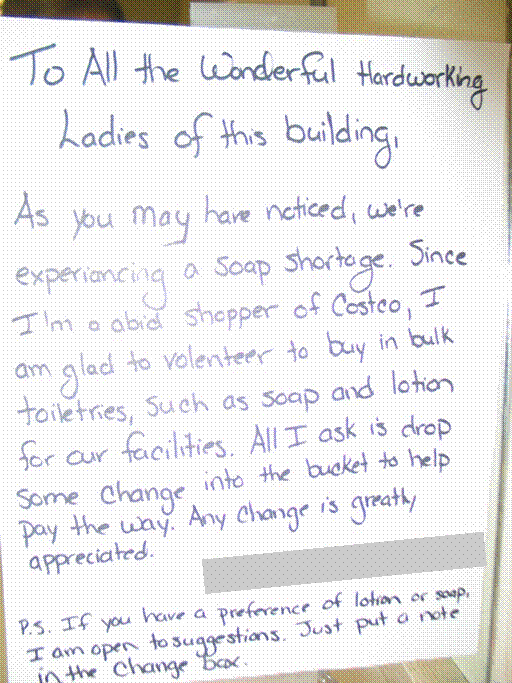 To All the Wonderful Hardworking
Ladies of this building,
As you may have noticed, we're
experiancing a soap shortage. Since
I'm a abid shopper of Costco, I
am glad to volenteer to buy in bulk
toiletries, such as soap and lotion
for our facilities. All I ask is drop
some change into the bucket to help
pay the way. Any change is greatly
appreciated.
P.S. If you have a preference of lotion or soap,
I am open to suggestions. Just put a note
in the change box.